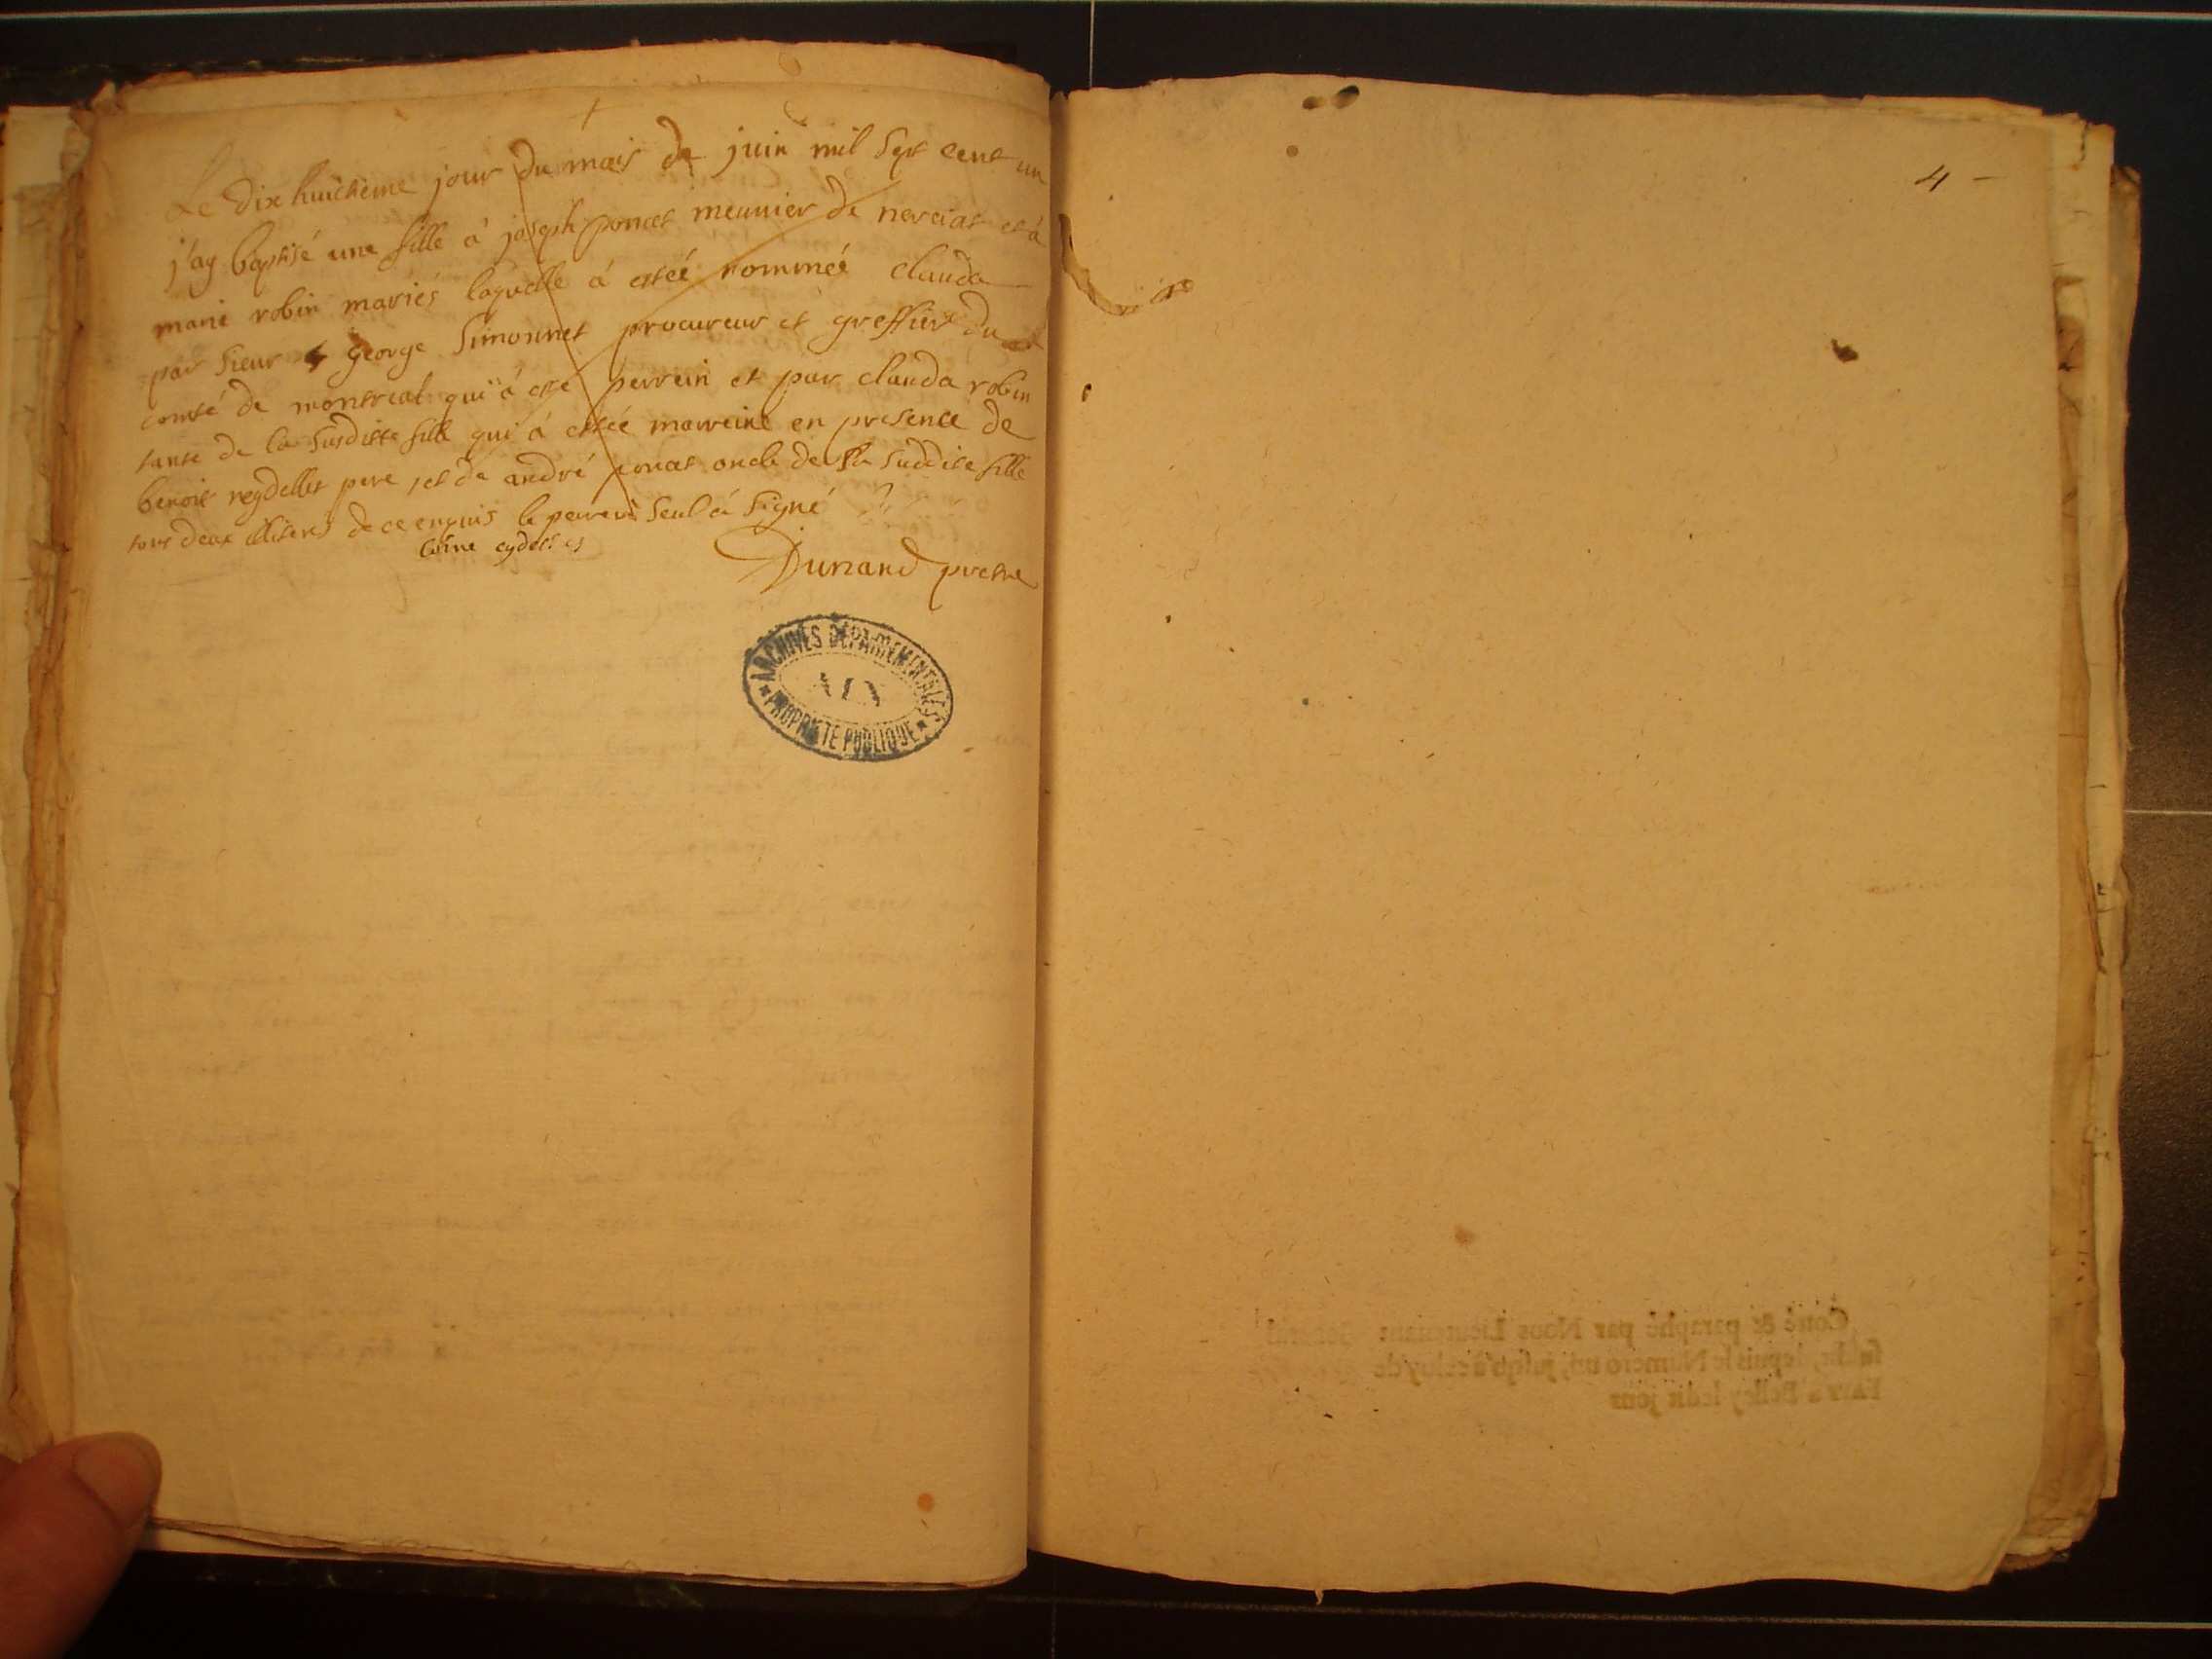 Le dix huictième jour du mois de juin mil sept cent un
j'ay baptisé une fille à joseph poncet meunier de nerciat et à
marie robin mariés laquelle á estéé nommèé clauda
par sieur george Simonnet procureur et greffier du
comté de montreal qui á esté perrein et par clauda robin
tante de la susditte fille qui á estéé marreine en presence de
benoit pere et de andré poncet oncle de la suditte fille
tous deux illiterés de ce enquis le perrein seul á signé
Dunand prestre
ARCHIVES DEPARTEMENTALES
AIN
PROPRIÉTÉ PUBLIQUE
4 -
Cotté & paraphé par Nous Lieutenant General
depuis le Numero un, jusqu'à celuy de
FAIT à Belley ledit jour